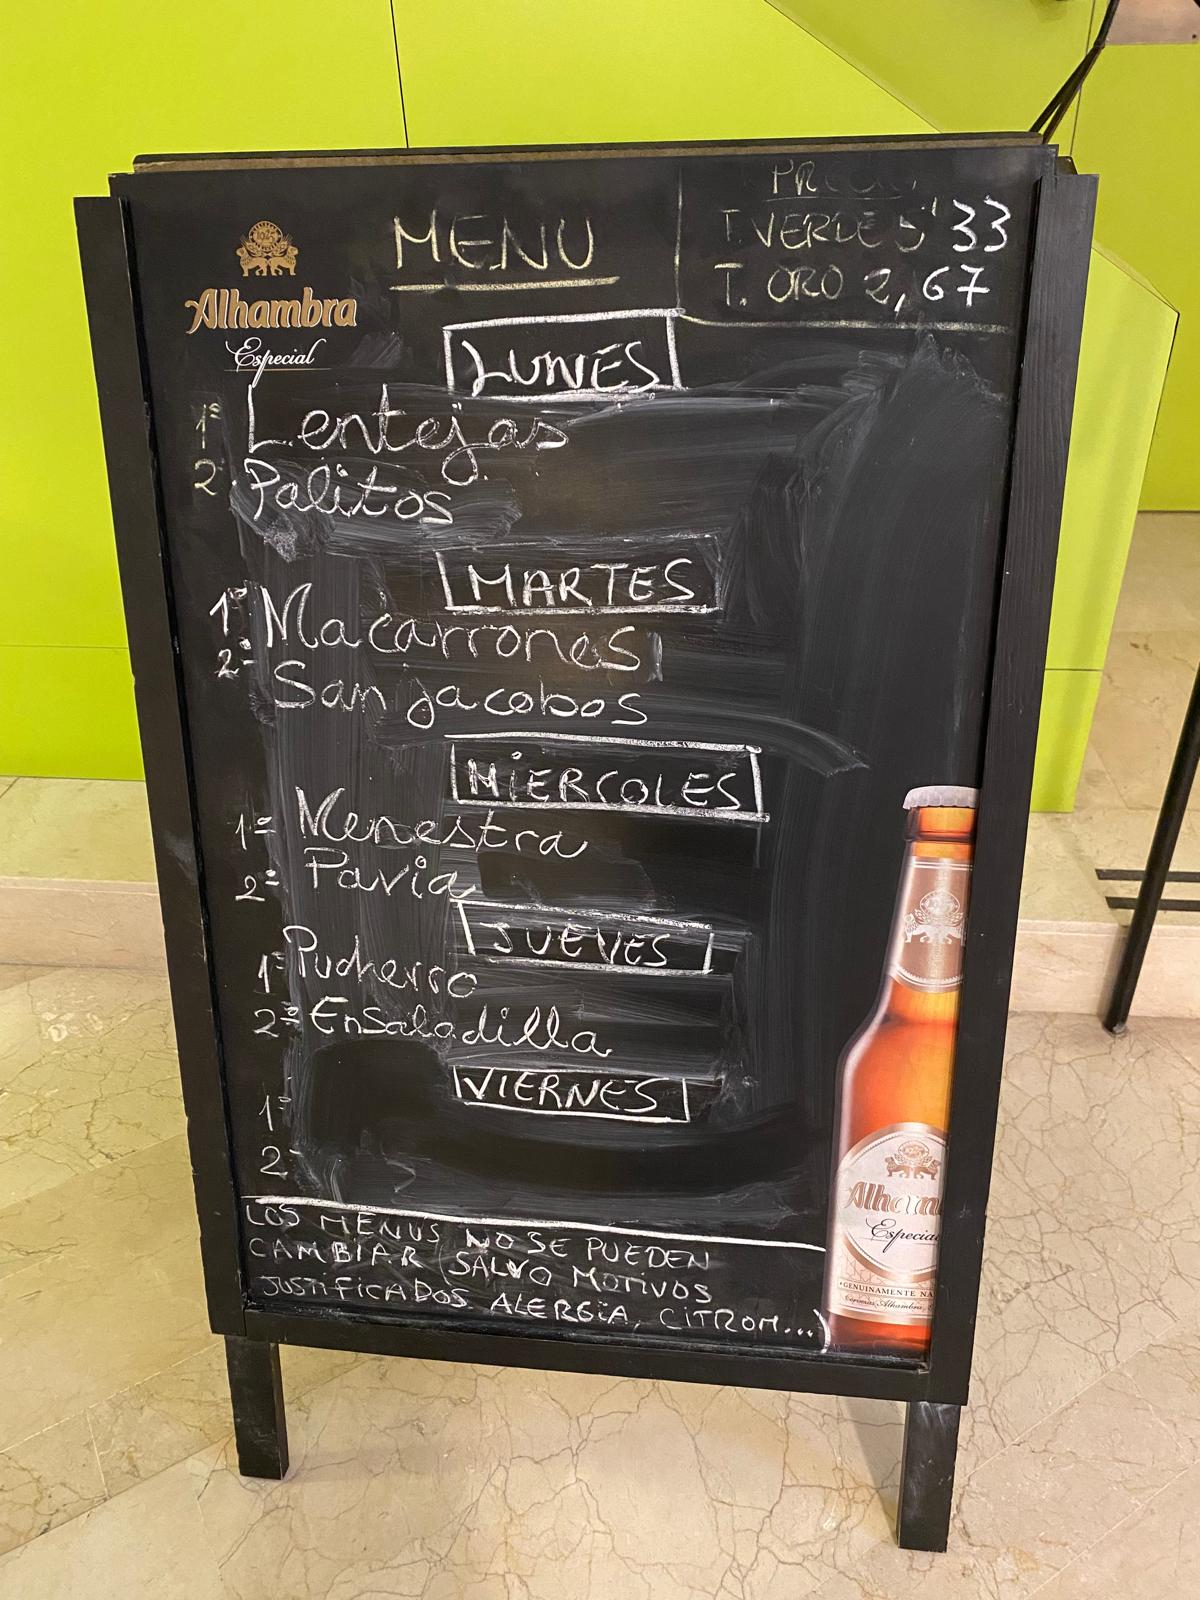 Alhambra
Especial
MENU
T. VERDE 5'33
T. ORO 2,67
LUNES
1º Lentejas
2. Palitos
MARTES
1º Macarrones
2º San jacobos
MIERCOLES
1º Menestra
2º Pavia
JUEVES
1º Pucherro
2º Ensaladilla
VIERNES
1º
2º
LOS MENUS NO SE PUEDEN
CAMBIAR (SALVO MOTIVOS
JUSTIFICADOS ALERGIA, CITROM...)
Especial